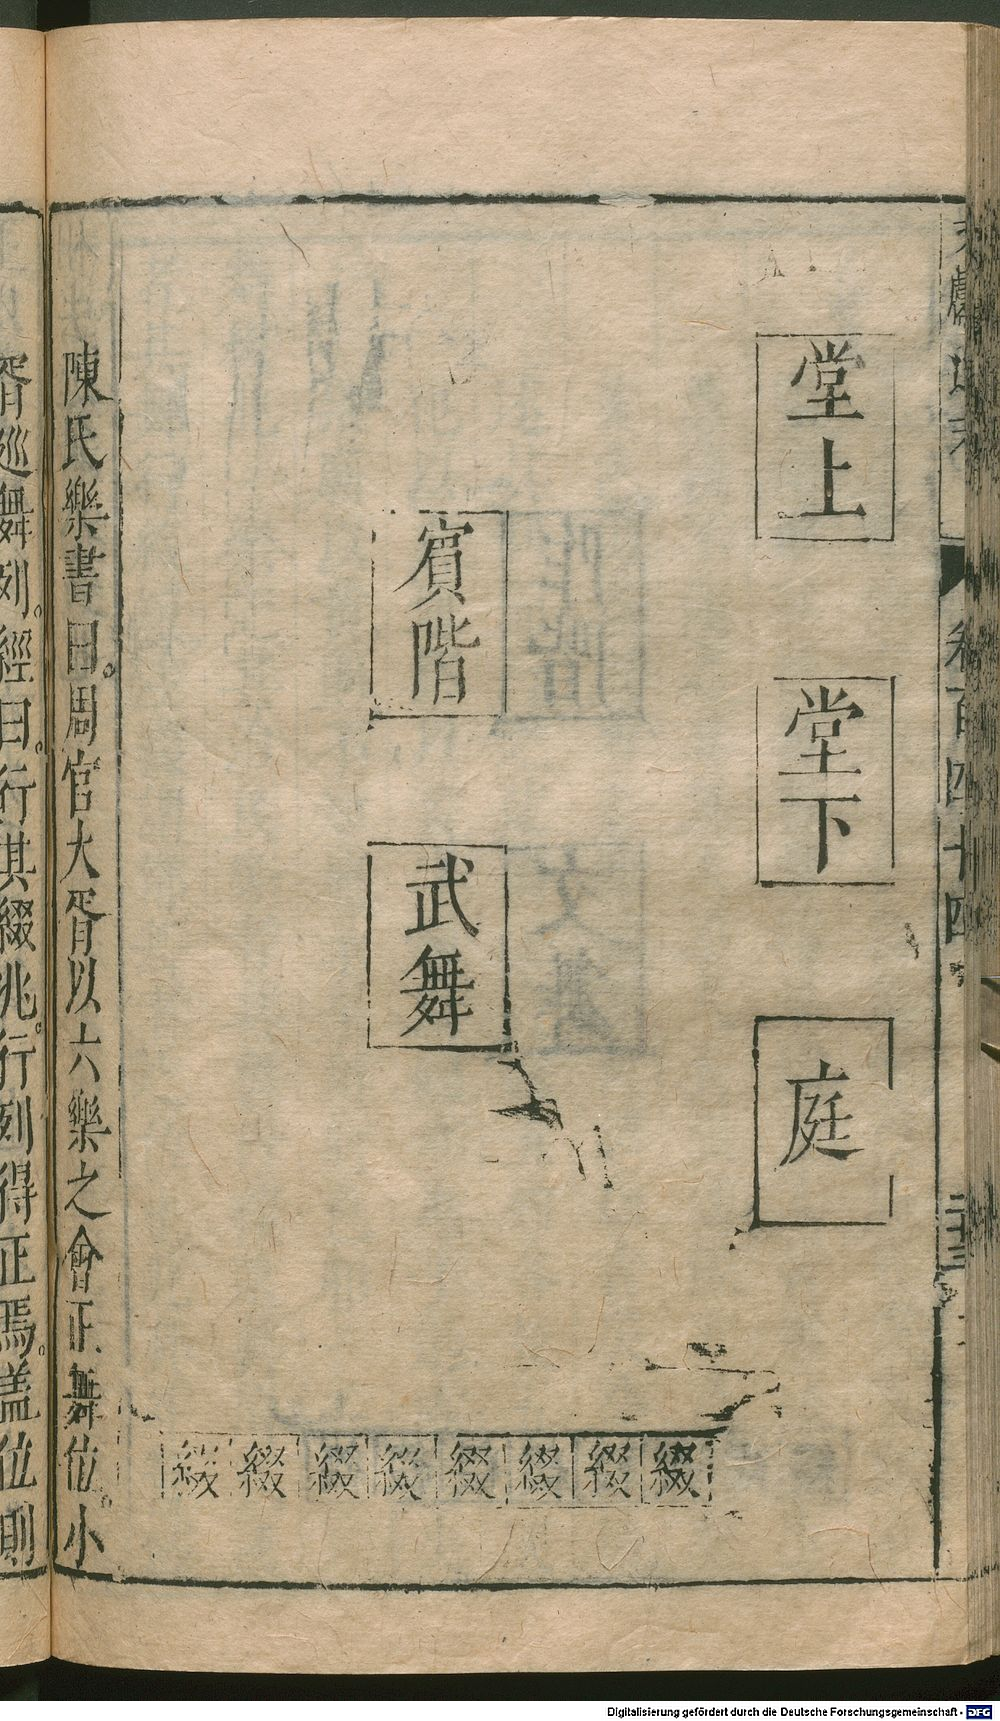 卷百四十四
堂上
堂下
庭
賔階
武舞
綴綴綴綴綴綴綴綴
陳氏樂書曰周官大胥以六樂之會正舞位小
胥巡舞列經曰行其綴兆行列得正焉盖位則
Digitalisierung gefördert durch die Deutsche Forschungsgemeinschaft - DFG